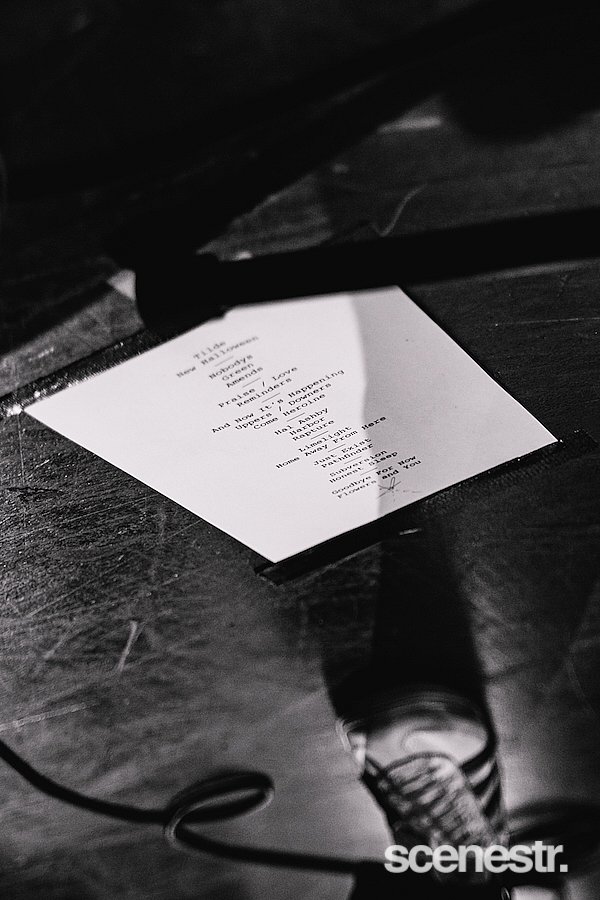 Tilde
New Halloween
Nobodys
Green
Amends
Praise / Love
Reminders
And Now It's Happening
Uppers / Downers
Come Heroine
Hal Ashby
Harbor
Rapture
Limelight
Home Away From Here
Just Exist
Pathfinder
Subversion
Honest Sleep
Goodbye For Now
Flowers and You
scenestr.